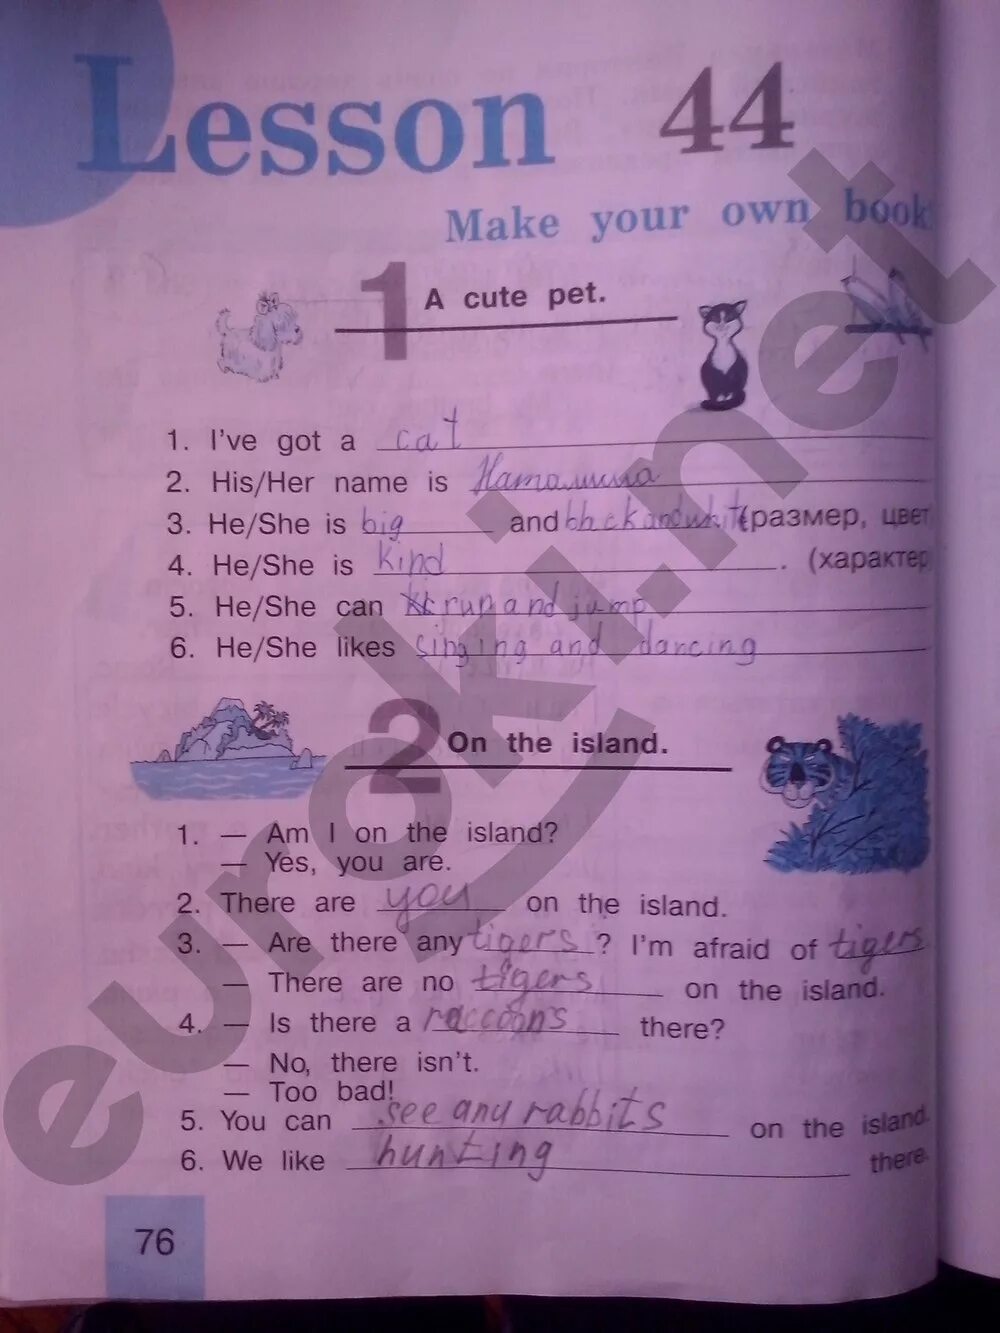 Lesson 44
Make your own book
1 A cute pet.
1. I've got a cat
2. His/Her name is
3. He/She is big and black and white (размер, цвет
4. He/She is kind. (характер
5. He/She can run and jump
6. He/She likes singing and dancing
2 On the island.
1. — Am I on the island?
— Yes, you are.
2. There are you on the island.
3. — Are there any tigers? I'm afraid of tigers
— There are no tigers on the island.
4. — Is there a raccoons there?
— No, there isn't.
— Too bad!
5. You can see any rabbits on the island.
6. We like hunting there.
76
euroki.net